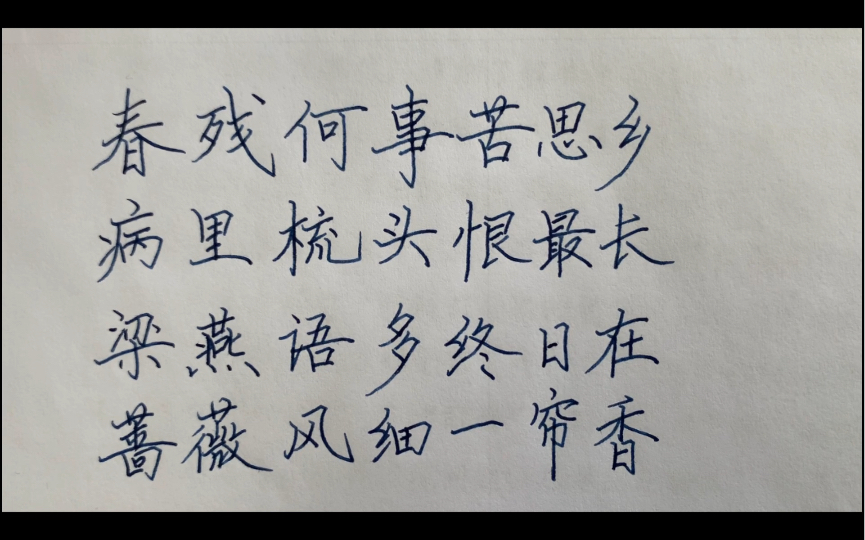 春残何事苦思乡
病里梳头恨最长
梁燕语多终日在
蔷薇风细一帘香